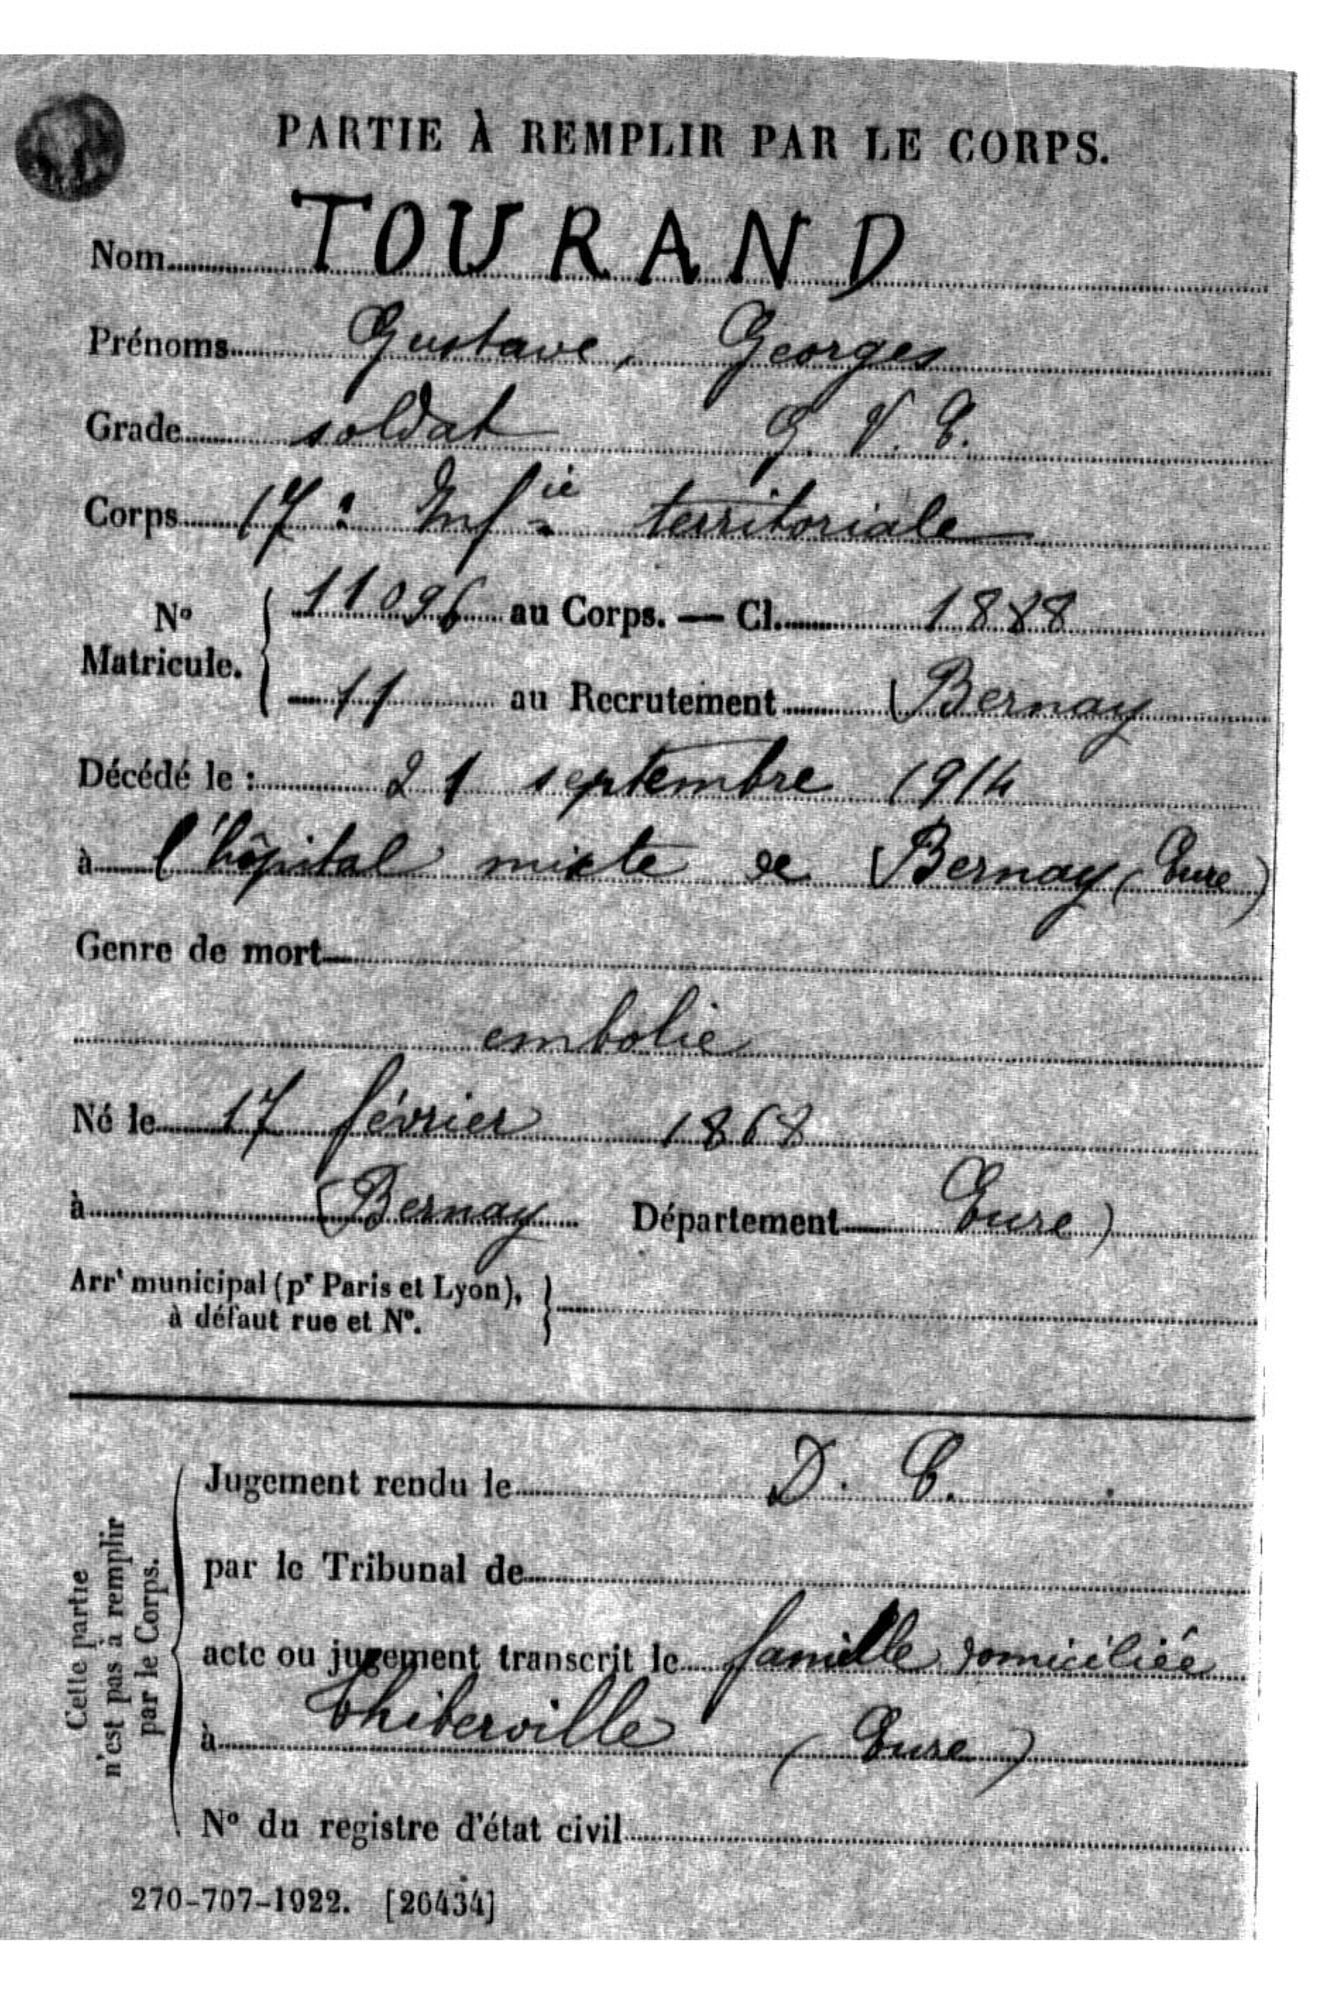 PARTIE À REMPLIR PAR LE CORPS.
Nom TOURAND
Prénoms Gustave, Georges
Grade soldat G. V. C.
Corps 17e Infie territoriale
No Matricule. { 11096 au Corps. — Cl. 1888
11 au Recrutement Bernay
Décédé le : 21 septembre 1914
à l'hôpital mixte de Bernay (Eure)
Genre de mort
embolie
Né le 17 février 1868
à Bernay Département Eure)
Arrt municipal (pr Paris et Lyon),
à défaut rue et No. }
Cette partie
n'est pas à remplir
par le Corps.
Jugement rendu le D. C.
par le Tribunal de
acte ou jugement transcrit le famille domiciliée
à Thiberville (Eure)
No du registre d'état civil
270-707-1922. [26434]